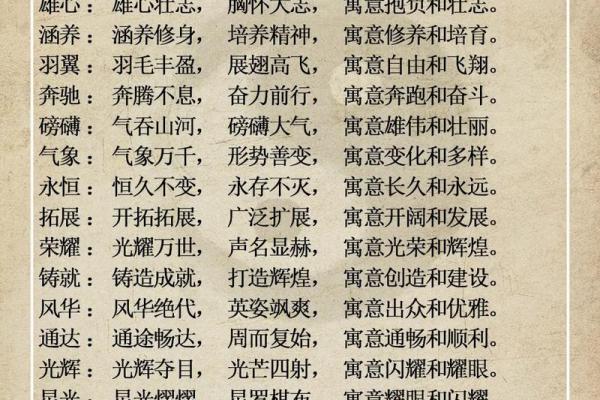 雄心：雄心壮志，胸怀大志，寓意抱负和壮志。
涵养：涵养修身，培养精神，寓意修养和培育。
羽翼：羽毛丰盈，展翅高飞，寓意自由和飞翔。
奔驰：奔腾不息，奋力前行，寓意奔跑和奋斗。
磅礴：气吞山河，磅礴大气，寓意雄伟和壮丽。
气象：气象万千，形势善变，寓意变化和多样。
永恒：恒久不变，永存不灭，寓意长久和永远。
拓展：开拓拓展，广泛扩展，寓意开阔和发展。
荣耀：光耀万世，声名显赫，寓意光荣和辉煌。
铸就：铸造成就，打造辉煌，寓意创造和建设。
风华：风华绝代，英姿飒爽，寓意出众和优雅。
通达：通途畅达，周而复始，寓意通畅和顺利。
光辉：光辉夺目，光芒四射，寓意闪耀和耀眼。
星光：星光熠熠，星罗棋布，寓意耀眼和闪耀。